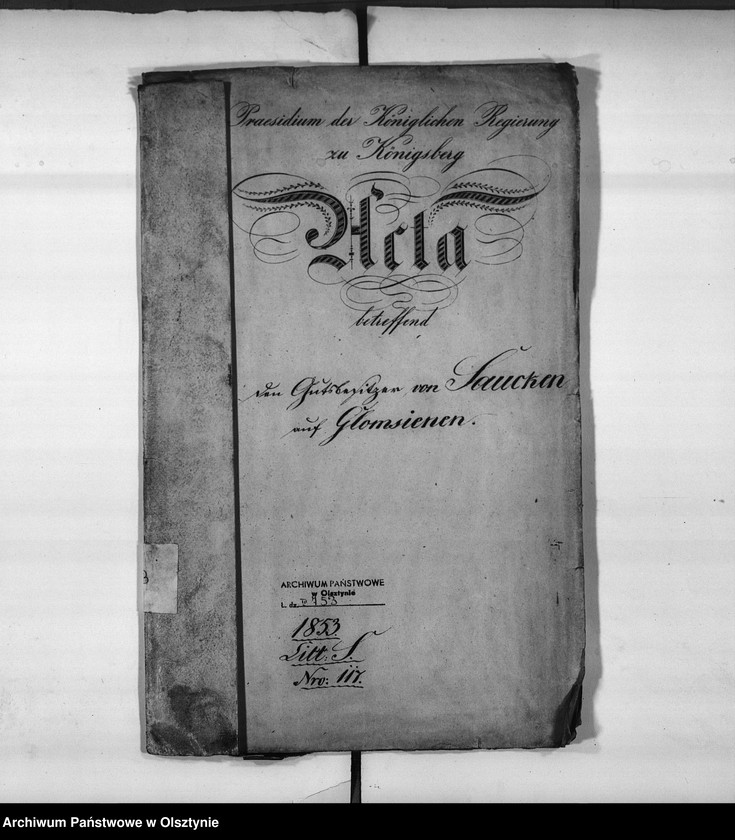 Praesidium der Königlichen Regierung
zu Königsberg
Acta
betreffend
den Gutsbesitzer von Saucken
auf Glomsienen.
ARCHIWUM PAŃSTWOWE
w Olsztynie
L. dz.
1853.
Litt: S.
Nro:
Archiwum Państwowe w Olsztynie